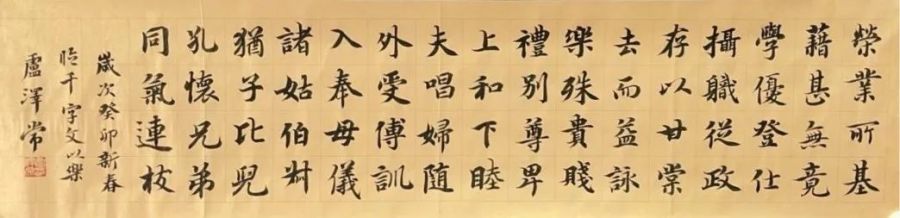 榮業所基
藉甚無竟
學優登仕
攝職從政
存以甘棠
去而益詠
樂殊貴賤
禮別尊卑
上和下睦
夫唱婦随
外受傅訓
入奉母儀
諸姑伯叔
猶子比兒
孔懷兄弟
同氣連枝
歲次癸卯新春
臨千字文以樂
盧澤常